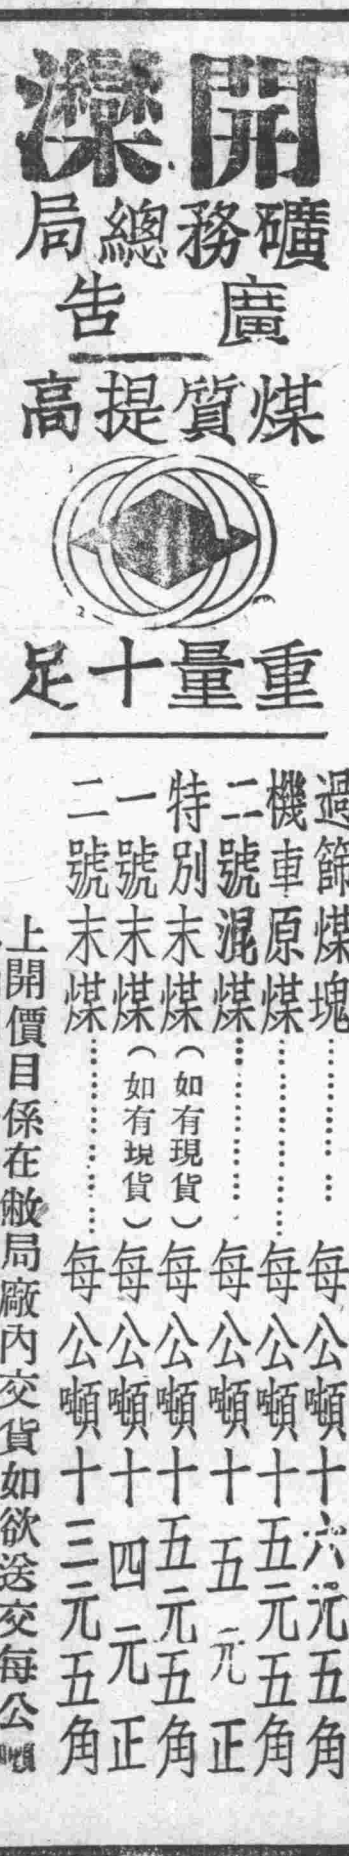 開灤
礦務總局
廣告
煤質提高
重量十足
過篩煤塊……每公噸十六元五角
機車原煤……每公噸十五元五角
二號混煤……每公噸十五元正
特別末煤（如有現貨）每公噸十五元五角
一號末煤（如有現貨）每公噸十四元正
二號末煤……每公噸十三元五角
上開價目係在敝局廠內交貨如欲送交每公噸